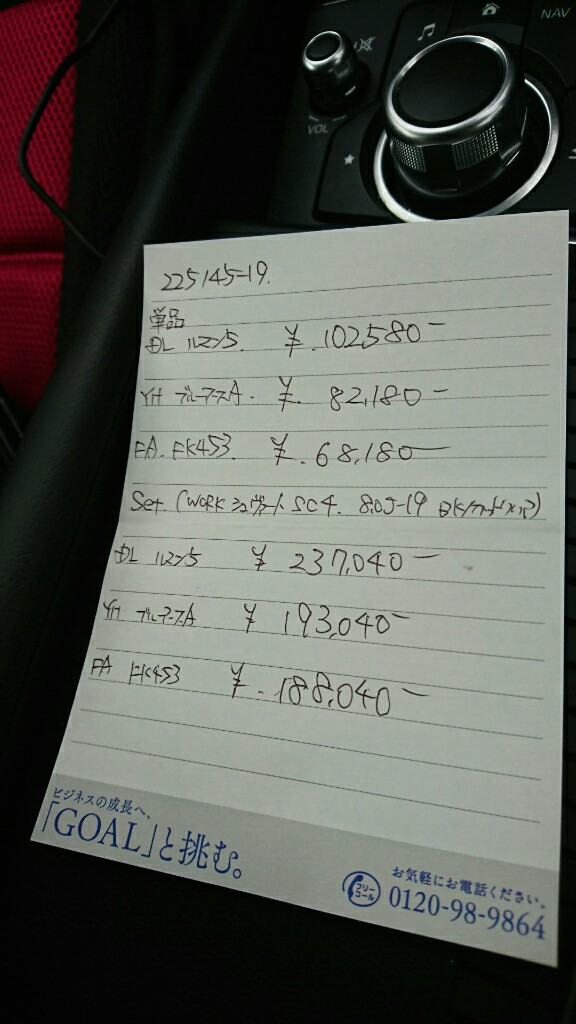 NAV
VOL
225/45-19.
単品
DL ルマン5. ¥.102580-
YH ブルーアースA. ¥. 82,180-
FA. FK453. ¥.68,180-
Set. (WORK シュヴァート SC4. 8.0J-19
DL ルマン5 ¥ 237,040-
YH ブルーアースA ¥ 193,040-
FA FK453 ¥.188,040-
ビジネスの成長へ、
「GOAL」と挑む。
お気軽にお電話ください。
フリーコール 0120-98-9864